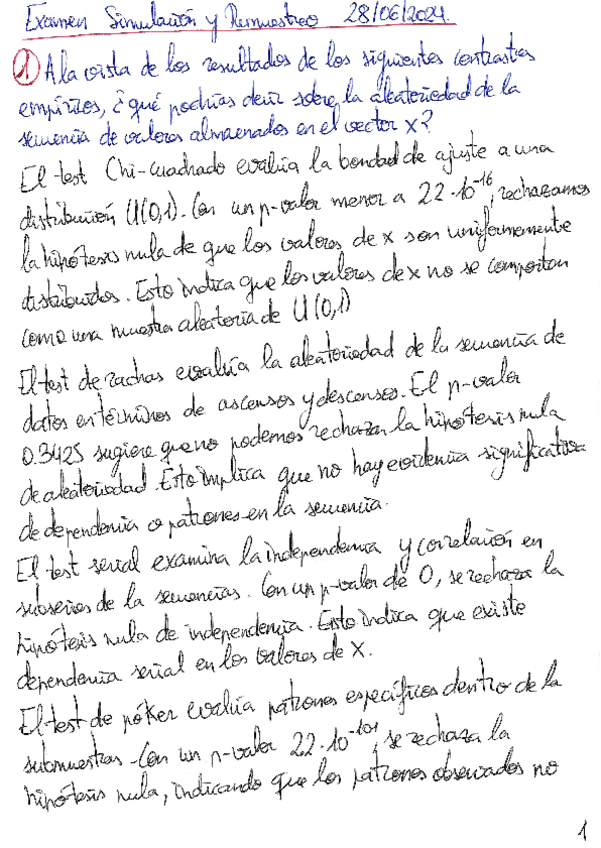 Examen Simulación y Remuestreo 28/06/2024.
① A la vista de los resultados de los siguientes contrastes
empíricos, ¿qué podrías decir sobre la aleatoriedad de la
secuencia de valores almacenados en el vector x?
El test Chi-cuadrado evalúa la bondad de ajuste a una
distribución U(0,1). Con un p-valor menor a 2.2·10^-16, rechazamos
la hipótesis nula de que los valores de x son uniformemente
distribuidos. Esto indica que los valores de x no se comportan
como una muestra aleatoria de U(0,1)
El test de rachas evalúa la aleatoriedad de la secuencia de
datos en términos de ascensos y descensos. El p-valor
0.3425 sugiere que no podemos rechazar la hipótesis nula
de aleatoriedad. Esto implica que no hay evidencia significativa
de dependencia o patrones en la secuencia.
El test serial examina la independencia y correlación en
subseries de la secuencias. Con un p-valor de 0, se rechaza la
hipótesis nula de independencia. Esto indica que existe
dependencia serial en los valores de x.
El test de póker evalúa patrones específicos dentro de la
submuestras. Con un p-valor 2.2·10^-101, se rechaza la
hipótesis nula, indicando que los patrones observados no
1